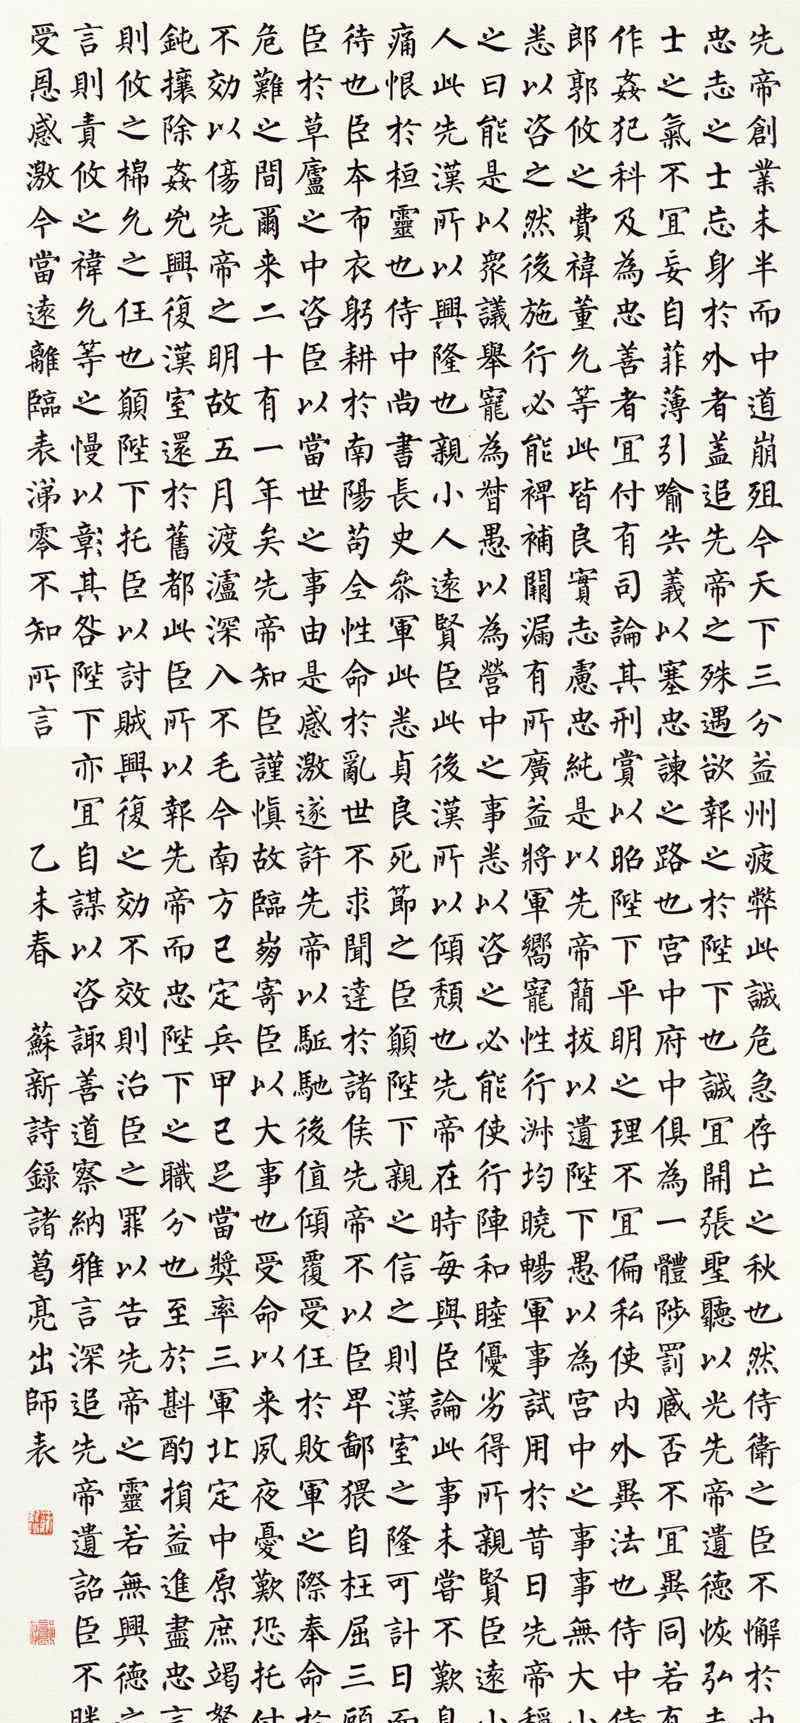 先帝創業未半而中道崩殂今天下三分益州疲弊此誠危急存亡之秋也然侍衛之臣不懈於内
忠志之士忘身於外者蓋追先帝之殊遇欲報之於陛下也誠宜開張聖聽以光先帝遺德恢弘志
士之氣不宜妄自菲薄引喻失義以塞忠諫之路也宮中府中俱為一體陟罰臧否不宜異同若有
作姦犯科及為忠善者宜付有司論其刑賞以昭陛下平明之理不宜偏私使内外異法也侍中侍
郎郭攸之費禕董允等此皆良實志慮忠純是以先帝簡拔以遺陛下愚以為宮中之事事無大小
悉以咨之然後施行必能裨補闕漏有所廣益將軍嚮寵性行淑均曉暢軍事試用於昔日先帝稱
之曰能是以眾議舉寵為督愚以為營中之事悉以咨之必能使行陣和睦優劣得所親賢臣遠小
人此先漢所以興隆也親小人遠賢臣此後漢所以傾頹也先帝在時每與臣論此事未嘗不歎息
痛恨於桓靈也侍中尚書長史參軍此悉貞良死節之臣願陛下親之信之則漢室之隆可計日而
待也臣本布衣躬耕於南陽苟全性命於亂世不求聞達於諸侯先帝不以臣卑鄙猥自枉屈三顧
臣於草廬之中咨臣以當世之事由是感激遂許先帝以駈馳後值傾覆受任於敗軍之際奉命於
危難之間爾来二十有一年矣先帝知臣謹慎故臨崩寄臣以大事也受命以来夙夜憂歎恐托付
不効以傷先帝之明故五月渡瀘深入不毛今南方已定兵甲已足當獎率三軍北定中原庶竭駑
鈍攘除姦兇興復漢室還於舊都此臣所以報先帝而忠陛下之職分也至於斟酌損益進盡忠言
則攸之禕允之任也願陛下托臣以討賊興復之効不效則治臣之罪以告先帝之靈若無興德之
言則責攸之禕允等之慢以彰其咎陛下亦宜自謀以咨諏善道察納雅言深追先帝遺詔臣不勝
受恩感激今當遠離臨表涕零不知所言 乙未春 蘇新詩錄諸葛亮出師表